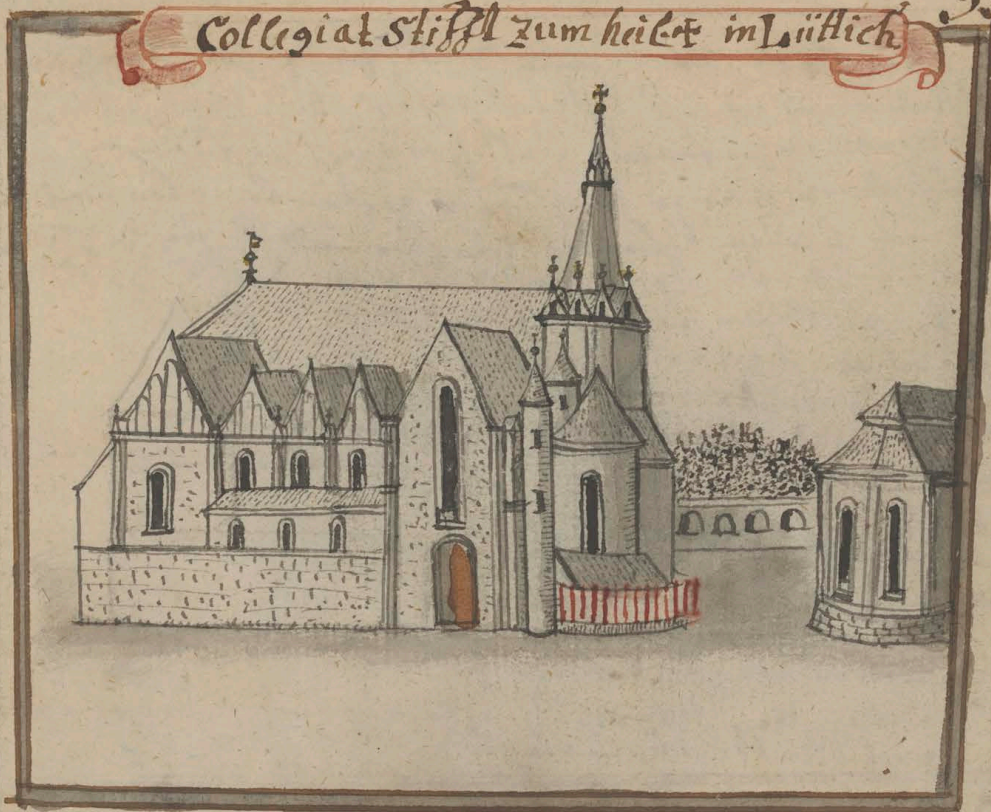 Collegiat Stifft zum in Lüttich